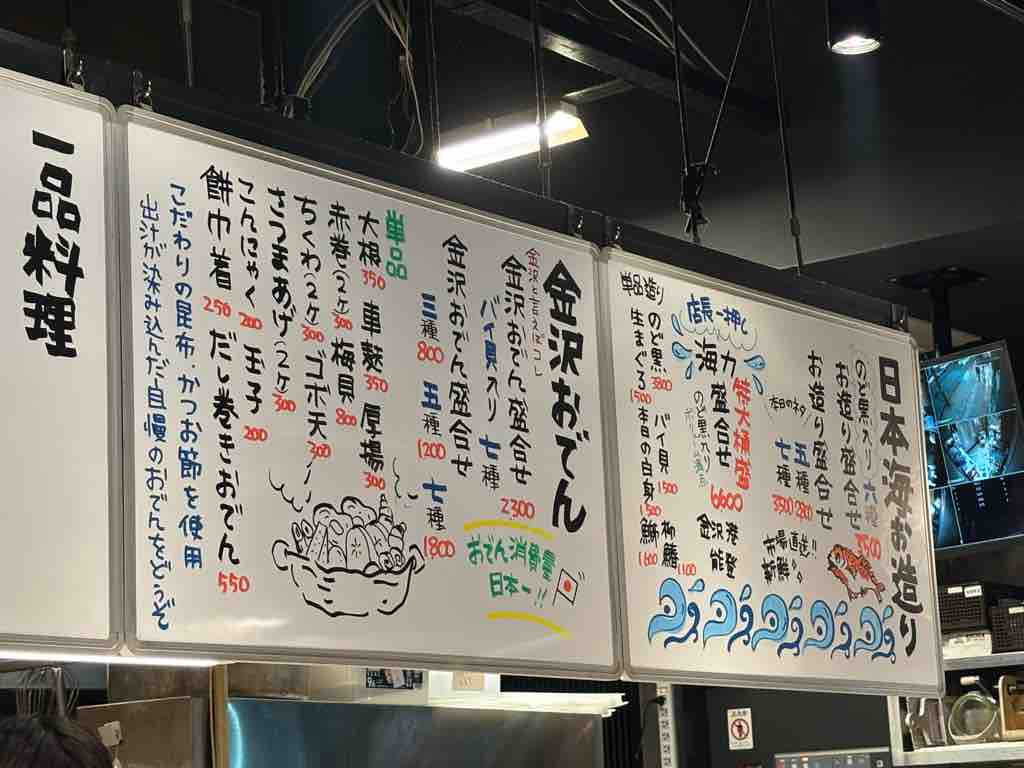 日本海お造り
のど黒入り六種
お造り盛合せ
7500
お造り盛合せ
五種 2800
七種 3500
本日のネタ
市場直送!!
新鮮
店長一押し
海力
特大桶盛
盛合せ
6600
のど黒入り
金沢港
能登
単品造り
のど黒 3800
バイ貝 1500
柳鰆 1100
生まぐろ 1500
本日の白身 1300
鰤 1600
金沢おでん
金沢と言えばコレ
金沢おでん盛合せ
バイ貝入り 七種
2300
金沢おでん盛合せ
三種 800
五種 1200
七種 1800
おでん消費量
日本一!!
単品
大根 350
車麩 350
厚揚 300
赤巻(2ヶ) 300
梅貝 800
ちくわ(2ヶ) 300
ゴボ天 300
さつまあげ(2ヶ) 300
こんにゃく 200
玉子 200
餅巾着 250
だし巻きおでん 550
こだわりの昆布・かつお節を使用
出汁が染み込んだ自慢のおでんをどうぞ
一品料理